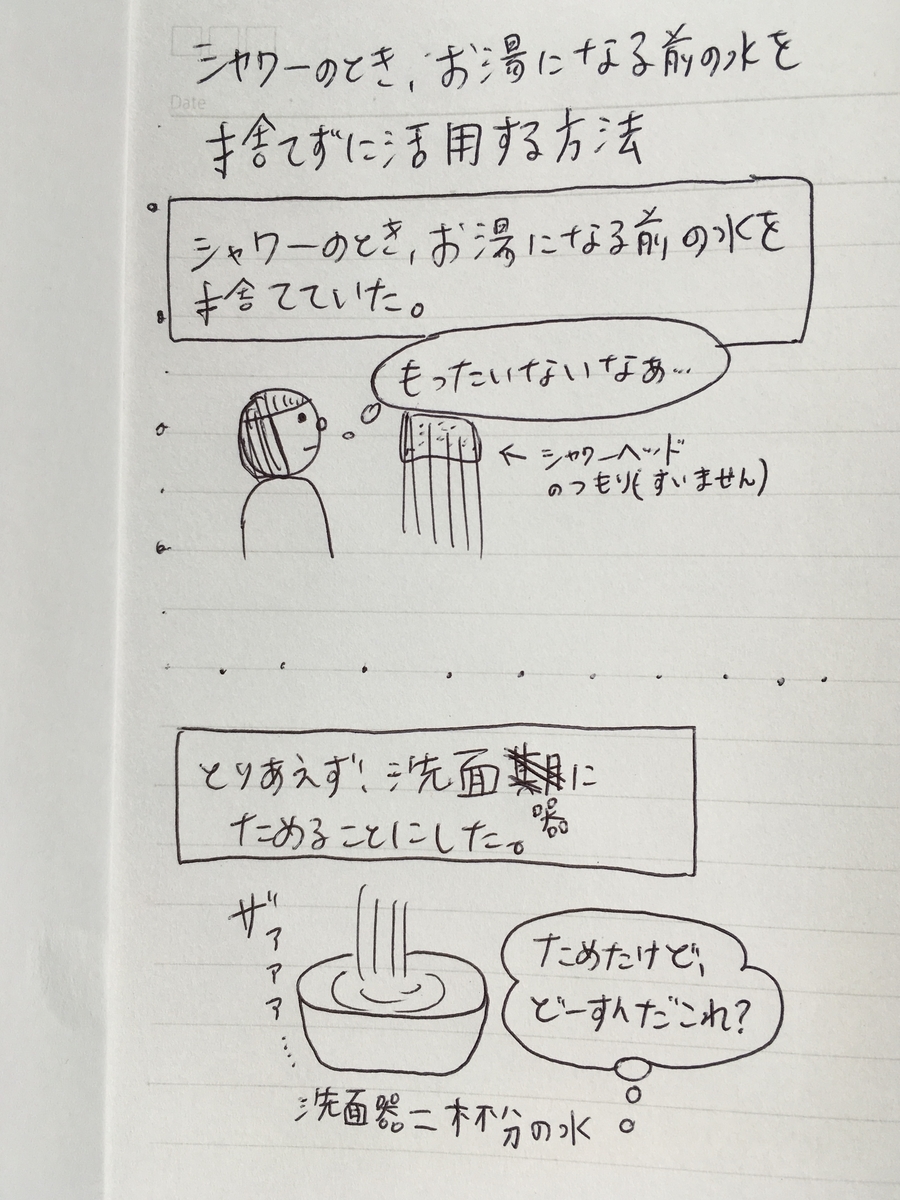 Date
シャワーのとき、お湯になる前の水を
捨てずに活用する方法
シャワーのとき、お湯になる前の水を
捨てていた。
もったいないなぁ…
← シャワーヘッド
のつもり(すいません)
とりあえず、洗面器に
ためることにした。
ザァァァ……
ためたけど、
どーすんだこれ？
洗面器二杯分の水